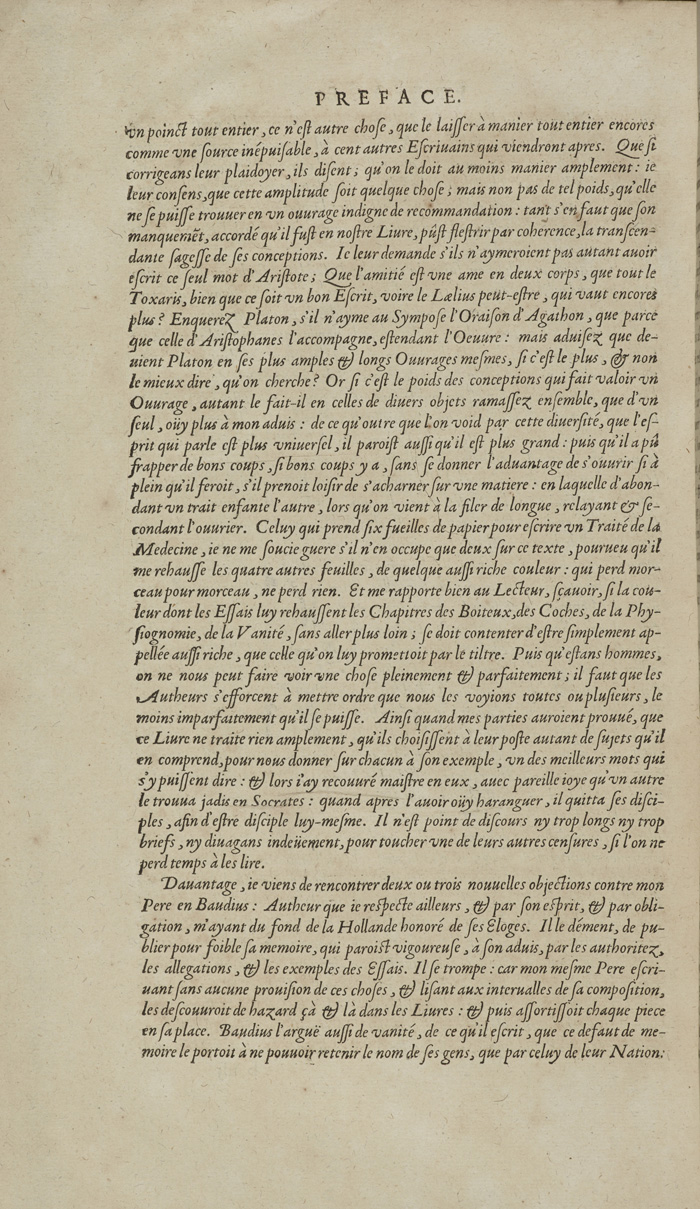 PREFACE.
vn poinct tout entier, ce n'eſt autre choſe, que le laiſſer à manier tout entier encores
comme vne ſource inépuiſable, à cent autres Eſcriuains qui viendront apres. Que ſi
corrigeans leur plaidoyer, ils diſent; qu'on le doit au moins manier amplement: ie
leur conſens, que cette amplitude ſoit quelque choſe; mais non pas de tel poids, qu'elle
ne ſe puiſſe trouuer en vn ouurage indigne de recommandation: tant s'en faut que ſon
manquemẽt, accordé qu'il fuſt en noſtre Liure, pûſt fleſtrir par coherence, la tranſcen-
dante ſageſſe de ſes conceptions. Ie leur demande s'ils n'aymeroient pas autant auoir
eſcrit ce ſeul mot d'Ariſtote; Que l'amitié eſt vne ame en deux corps, que tout le
Toxaris, bien que ce ſoit vn bon Eſcrit, voire le Lælius peut-eſtre, qui vaut encores
plus? Enquerez Platon, s'il n'ayme au Sympoſe l'Oraiſon d'Agathon, que parce
que celle d'Ariſtophanes l'accompagne, eſtendant l'Oeuure: mais aduiſez que de-
uient Platon en ſes plus amples & longs Ouurages meſmes, ſi c'eſt le plus, & non
le mieux dire, qu'on cherche? Or ſi c'eſt le poids des conceptions qui fait valoir vn
Ouurage, autant le fait-il en celles de diuers objets ramaſſez enſemble, que d'vn
ſeul, oüy plus à mon aduis: de ce qu'outre que l'on void par cette diuerſité, que l'eſ-
prit qui parle eſt plus vniuerſel, il paroiſt auſſi qu'il eſt plus grand: puis qu'il a pû
frapper de bons coups, ſi bons coups y a, ſans ſe donner l'aduantage de s'ouurir ſi à
plein qu'il feroit, s'il prenoit loiſir de s'acharner ſur vne matiere: en laquelle d'abon-
dant vn trait enfante l'autre, lors qu'on vient à la filer de longue, relayant & ſe-
condant l'ouurier. Celuy qui prend ſix fueilles de papier pour eſcrire vn Traité de la
Medecine, ie ne me ſoucie guere s'il n'en occupe que deux ſur ce texte, pourueu qu'il
me rehauſſe les quatre autres feuilles, de quelque auſſi riche couleur: qui perd mor-
ceau pour morceau, ne perd rien. Et me rapporte bien au Lecteur, ſçauoir, ſi la cou-
leur dont les Eſſais luy rehauſſent les Chapitres des Boiteux, des Coches, de la Phy-
ſiognomie, de la Vanité, ſans aller plus loin; ſe doit contenter d'eſtre ſimplement ap-
pellée auſſi riche, que celle qu'on luy promettoit par le tiltre. Puis qu'eſtans hommes,
on ne nous peut faire voir vne choſe pleinement & parfaitement; il faut que les
Autheurs s'efforcent à mettre ordre que nous les voyions toutes ou pluſieurs, le
moins imparfaitement qu'il ſe puiſſe. Ainſi quand mes parties auroient prouué, que
ce Liure ne traite rien amplement, qu'ils choiſiſſent à leur poſte autant de ſujets qu'il
en comprend, pour nous donner ſur chacun à ſon exemple, vn des meilleurs mots qui
s'y puiſſent dire: & lors i'ay recouuré maiſtre en eux, auec pareille ioye qu'vn autre
le trouua jadis en Socrates: quand apres l'auoir oüy haranguer, il quitta ſes diſci-
ples, afin d'eſtre diſciple luy-meſme. Il n'eſt point de diſcours ny trop longs ny trop
briefs, ny diuagans indeüement, pour toucher vne de leurs autres cenſures, ſi l'on ne
perd temps à les lire.
Dauantage, ie viens de rencontrer deux ou trois nouuelles objections contre mon
Pere en Baudius: Autheur que ie reſpecte ailleurs, & par ſon eſprit, & par obli-
gation, m'ayant du fond de la Hollande honoré de ſes Eloges. Il le dément, de pu-
blier pour foible ſa memoire, qui paroiſt vigoureuſe, à ſon aduis, par les authoritez,
les allegations, & les exemples des Eſſais. Il ſe trompe: car mon meſme Pere eſcri-
uant ſans aucune prouiſion de ces choſes, & liſant aux interualles de ſa compoſition,
les deſcouuroit de hazard çà & là dans les Liures: & puis aſſortiſſoit chaque piece
en ſa place. Baudius l'arguë auſſi de vanité, de ce qu'il eſcrit, que ce defaut de me-
moire le portoit à ne pouuoir retenir le nom de ſes gens, que par celuy de leur Nation: